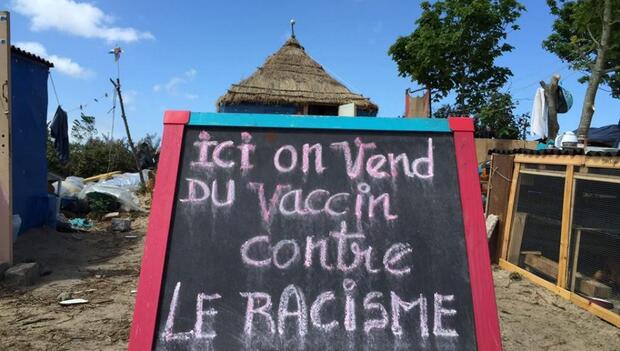 ici on vend
DU Vaccin
contre
LE RACISME